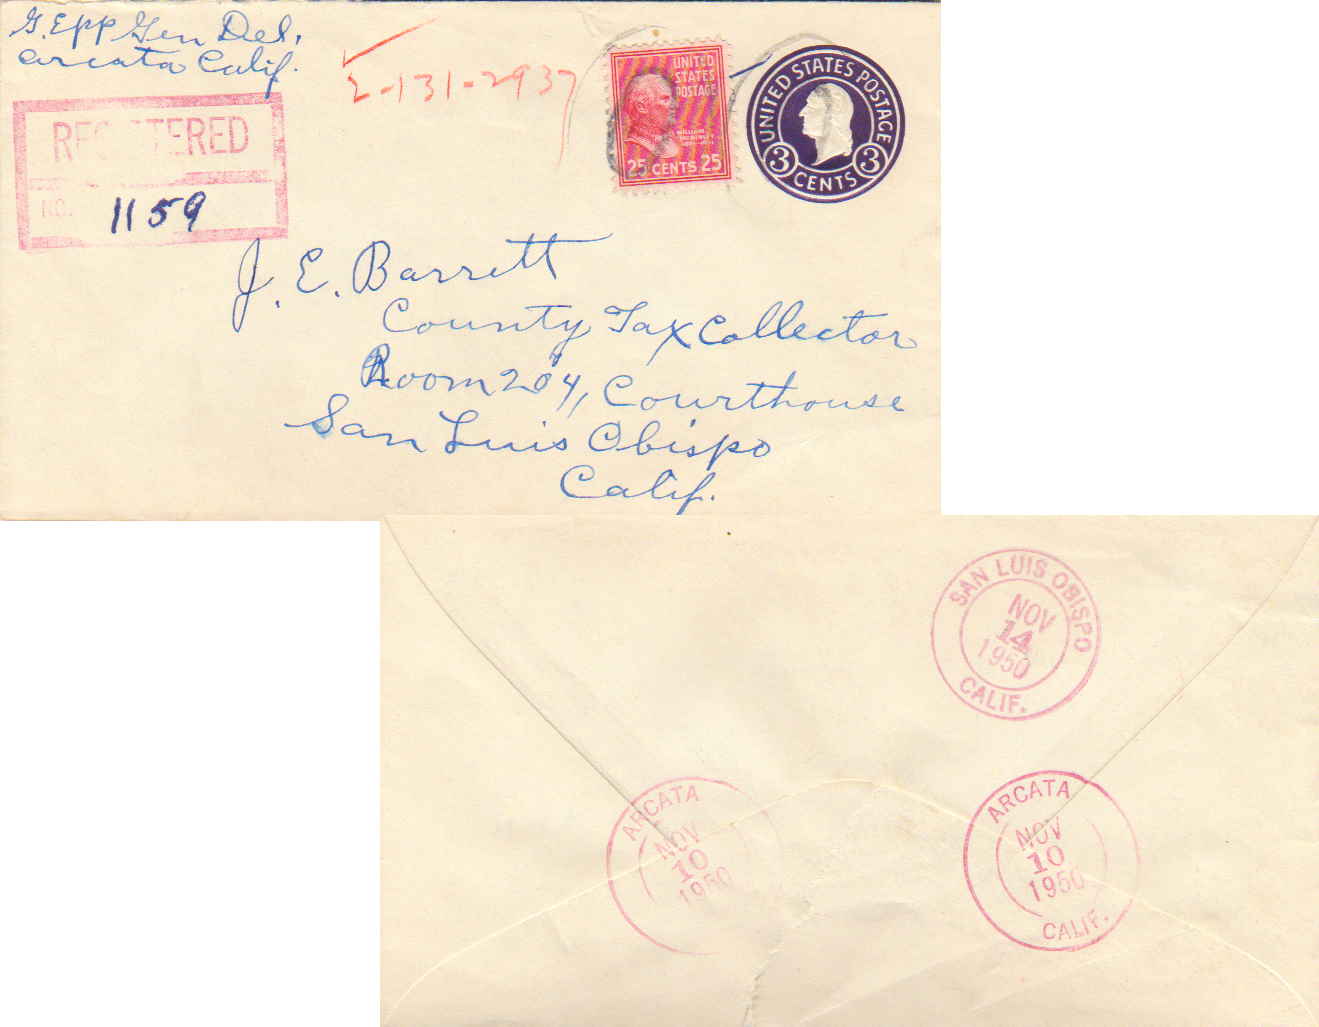 G. Epp Gen Del.
Arcata Calif.
REGISTERED
NO. 1159
2-131-2937
UNITED
STATES
POSTAGE
WILLIAM
McKINLEY
25 CENTS 25
UNITED STATES POSTAGE
3 CENTS 3
J. E. Barrett
County Tax Collector
Room 204, Courthouse
San Luis Obispo
Calif.
SAN LUIS OBISPO
NOV
14
1950
CALIF.
ARCATA
NOV
10
1950
ARCATA
NOV
10
1950
CALIF.